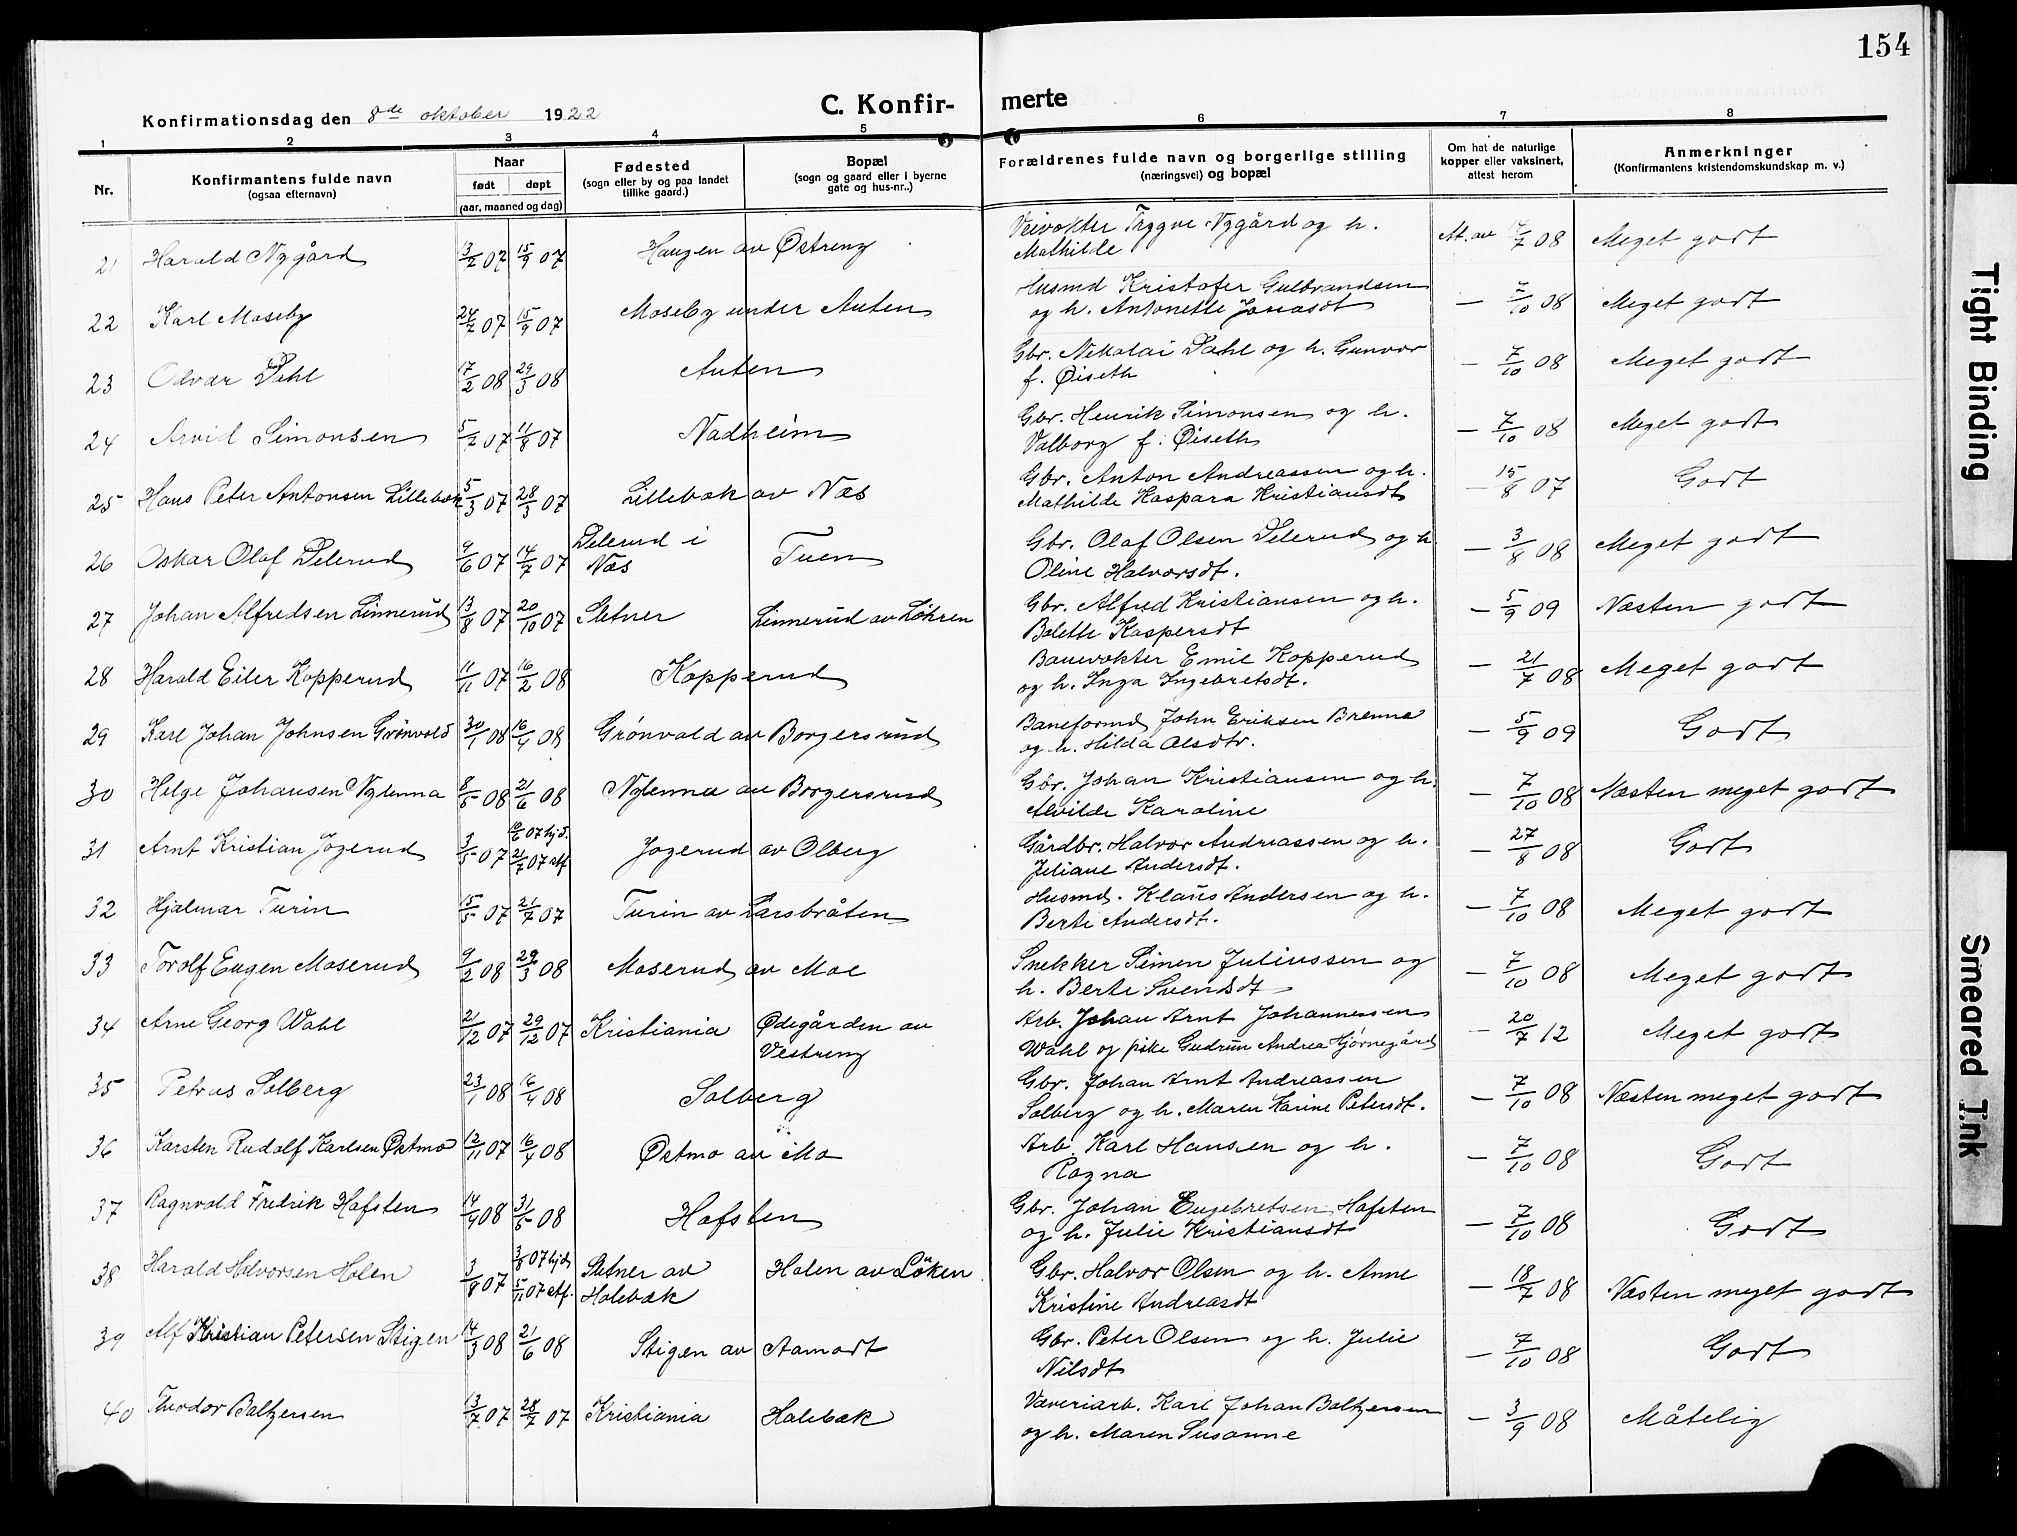 154
Konfirmationsdag den 8de oktober 1922
C. Konfir-
merte
1 2 3 4 5 6 7 8
Nr.
Konfirmantens fulde navn
(ogsaa efternavn)
Naar
født døpt
(aar, maaned og dag)
Fødested
(sogn eller by og paa landet
tillike gaard.)
Bopæl
(sogn og gaard eller i byerne
gate og hus-nr..)
Forældrenes fulde navn og borgerlige stilling
(næringsvei) og bopæl
Om hat de naturlige
kopper eller vaksinert,
attest herom
Anmerkninger
(Konfirmantens kristendomskundskap m. v.)
21 Harald Nygård 13/2 07 15/9 07 Haugen av Østreng Veivokter Trygve Nygård og h.
Mathilde At. av 14/7 08 Meget godt
22 Karl Moseby 24/7 07 15/9 07 Moseby under Auten Husmd Kristofer Gulbrandsen
og h. Antonette Jonasdt — 7/10 08 Meget godt
23 Olvar Dahl 17/2 08 29/3 08 Auten Gbr. Nikolai Dahl og h. Gunvor
f. Øiseth — 7/10 08 Meget godt
24 Arvid Simonsen 5/7 07 11/8 07 Nadheim Gbr. Henrik Simonsen og h.
Valborg f. Øiseth — 7/10 08 Meget godt
25 Hans Peter Antonsen Lillebæk 5/3 07 28/3 07 Lillebæk av Næs Gbr. Anton Andreassen og h.
Mathilde Kaspara Kristiansdt — 15/8 07 Godt
26 Oskar Olaf Delerud 9/6 07 14/7 07 Delerud i
Næs Tuen Gbr. Olaf Olsen Delerud og h
Oline Halvorsdt. — 3/8 08 Meget godt
27 Johan Alfredsen Linnerud 13/8 07 20/10 07 Setner Linnerud av Løkren Gbr. Alfred Kristiansen og h.
Bolette Kaspersdt — 5/9 09 Næsten godt
28 Harald Eiler Kopperud 11/11 07 16/2 08 Kopperud Banevokter Emil Kopperud
og h. Inga Ingebretsdt. — 21/7 08 Meget godt
29 Karl Johan Johnsen Grønvold 30/1 08 16/4 08 Grønvold av Borgersrud Baneformd John Eriksen Brenna
og h. Hilda Olsdtr. — 5/9 09 Godt
30 Helge Johansen Nylenna 8/5 08 21/6 08 Nylenna av Borgersrud Gbr. Johan Kristiansen og h.
Alvilde Karoline — 7/10 08 Næsten meget godt
31 Arnt Kristian Jogerud 3/5 07 10/6 07 hjd.
21/7 07 stf Jogerud av Olberg Gårdbr. Halvor Andreassen og h.
Juliane Andersdt. — 27/8 08 Godt
32 Hjalmar Turin 15/5 07 21/7 07 Turin av Larsbråten Husmd. Klaus Andersen og h.
Berte Andersdt. — 7/10 08 Meget godt
33 Torolf Eugen Moserud 9/2 08 29/3 08 Moserud av Moe Snekker Simen Juliussen og
h. Berte Svendsdt — 7/10 08 Meget godt
34 Arne Georg Wahl 21/12 07 29/12 07 Kristiania Ødegården av
Vestreng Arb. Johan Arnt Johannessen
Wahl og pike Gudrun Andrea Hjørnegård — 20/7 12 Meget godt
35 Petrus Solberg 23/1 08 16/4 08 Solberg Gbr. Johan Arnt Andreassen
Solberg og h. Maren Karine Petersdt. — 7/10 08 Næsten meget godt
36 Karsten Rudolf Karlsen Østmo 12/11 07 16/4 08 Østmo av Mo Arb. Karl Hansen og h.
Ragna — 7/10 08 Godt
37 Ragnvald Fredrik Hafsten 14/4 08 31/5 08 Hafsten Gbr. Johan Engebretsen Hafsten
og h. Julie Kristiansdt — 7/10 08 Godt
38 Harald Halvorsen Holen 3/8 07 3/8 07 hjd
5/11 07 stf. Setner av
Holebæk Holen av Løken Gbr. Halvor Olsen og h. Anne
Kristine Andreasdt — 18/7 08 Næsten meget godt
39 Alf Kristian Petersen Stigen 14/3 08 21/6 08 Stigen av Aamodt Gbr. Peter Olsen og h. Julie
Nilsdt — 7/10 08 Godt
40 Theodor Baltzersen 13/7 07 28/7 07 Kristiania Holebæk Væveriarb. Karl Johan Baltzersen
og h. Maren Susanne — 3/9 08 Måtelig
Tight Binding
Smeared Ink